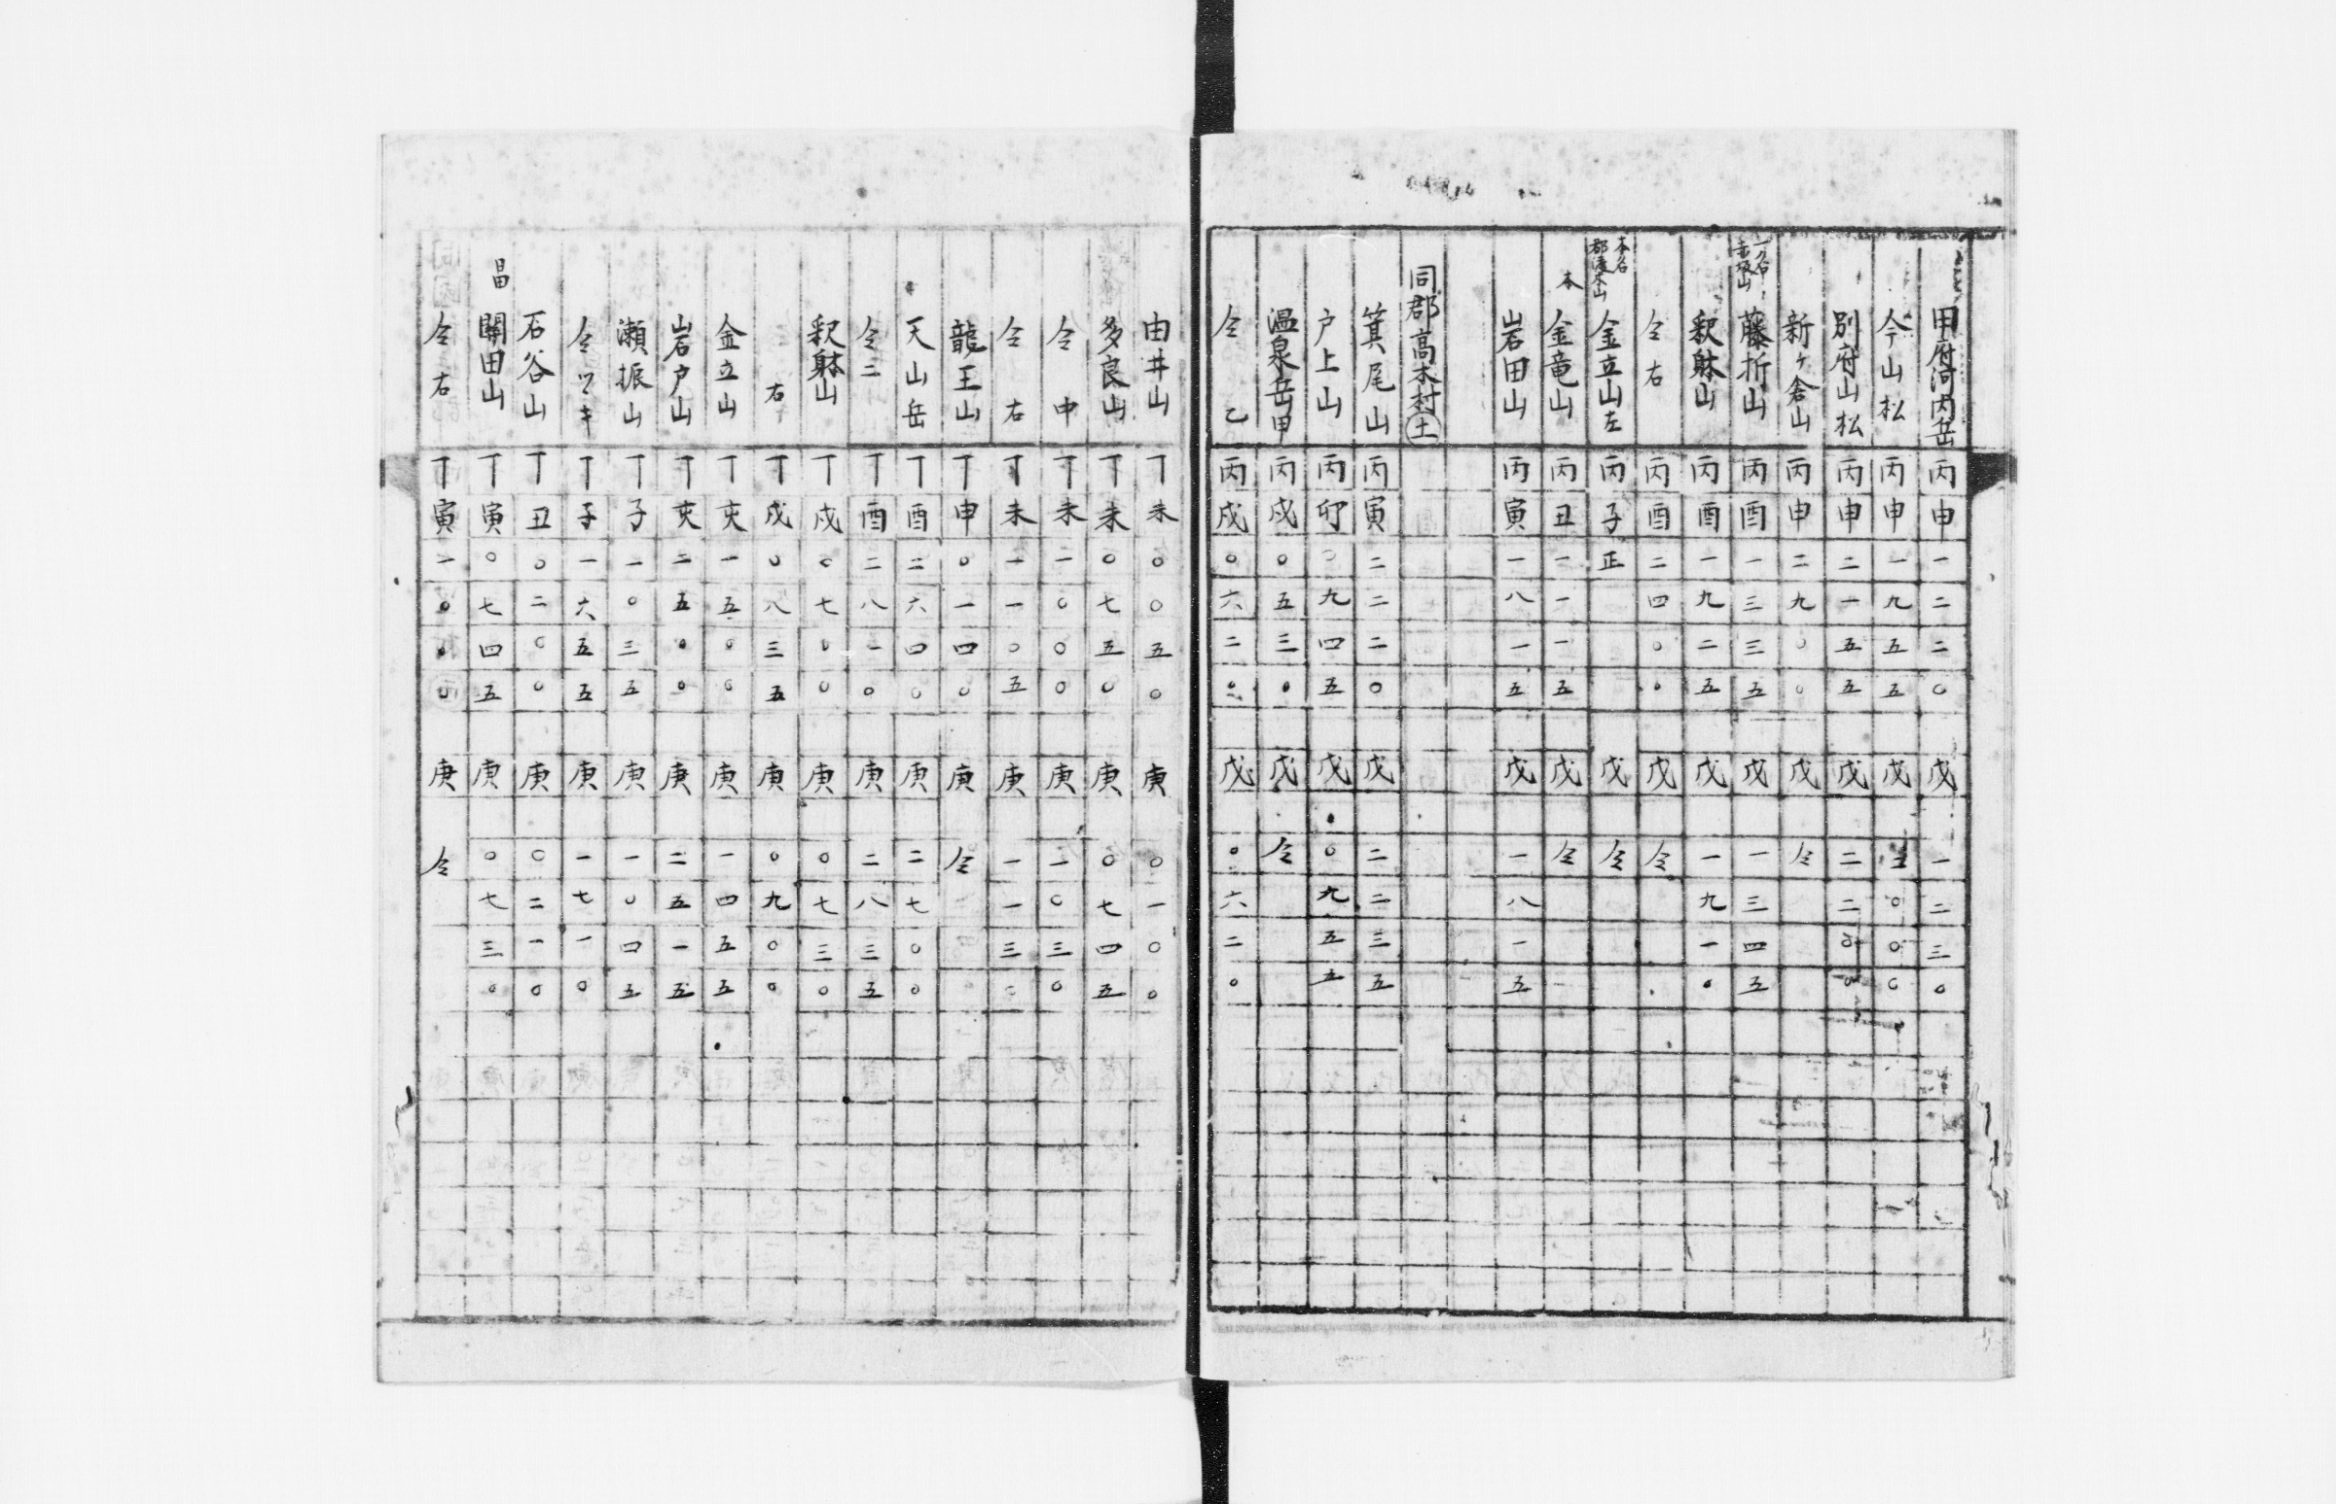 甲府河内岳 丙申 一二二〇 戊 一二三〇
今山松 丙申 一九五五 戊 二〇〇〇
別府山松 丙申 二一五五 戊 二二〇〇
新ヶ倉山 丙申 二九〇〇 戊 仝
藤折山 丙酉 一三三五 戊 一三四五
釈躰山 丙酉 一九二五 戊 一九一〇
仝右 丙酉 二四〇〇 戊 仝
本名
金立山左 丙子 正 戊 仝
本 金竜山 丙丑 一一一五 戊 仝
岩田山 丙寅 一八一五 戊 一八一五
同郡高木村㊏
箕尾山 丙寅 二二二〇 戊 二二三五
戸上山 丙卯 〇九四五 戊 〇九五五
温泉岳甲 丙戌 〇五三〇 戊 仝
仝乙 丙戌 〇六二〇 戊 〇六二〇
由井山 丁未 〇〇五〇 庚 〇一〇〇
多良山 丁未 〇七五〇 庚 〇七四五
仝中 丁未 一〇〇〇 庚 一〇三〇
仝右 丁未 一一〇五 庚 一一三〇
龍王山 丁申 〇一四〇 庚 仝
天山岳 丁酉 二六四〇 庚 二七〇〇
仝二 丁酉 二八一〇 庚 二八三五
釈躰山 丁戌 〇七〇〇 庚 〇七三〇
右 丁戌 〇八三五 庚 〇九〇〇
金立山 丁亥 一五〇〇 庚 一四五五
岩戸山 丁亥 二五〇〇 庚 二五一五
瀬振山 丁子 一〇三五 庚 一〇四五
仝ツキ 丁子 一六五五 庚 一七一〇
石谷山 丁丑 〇二〇〇 庚 〇二一〇
關田山 丁寅 〇七四五 庚 〇七三〇
仝右 丁寅 一〇〇〇 庚 仝